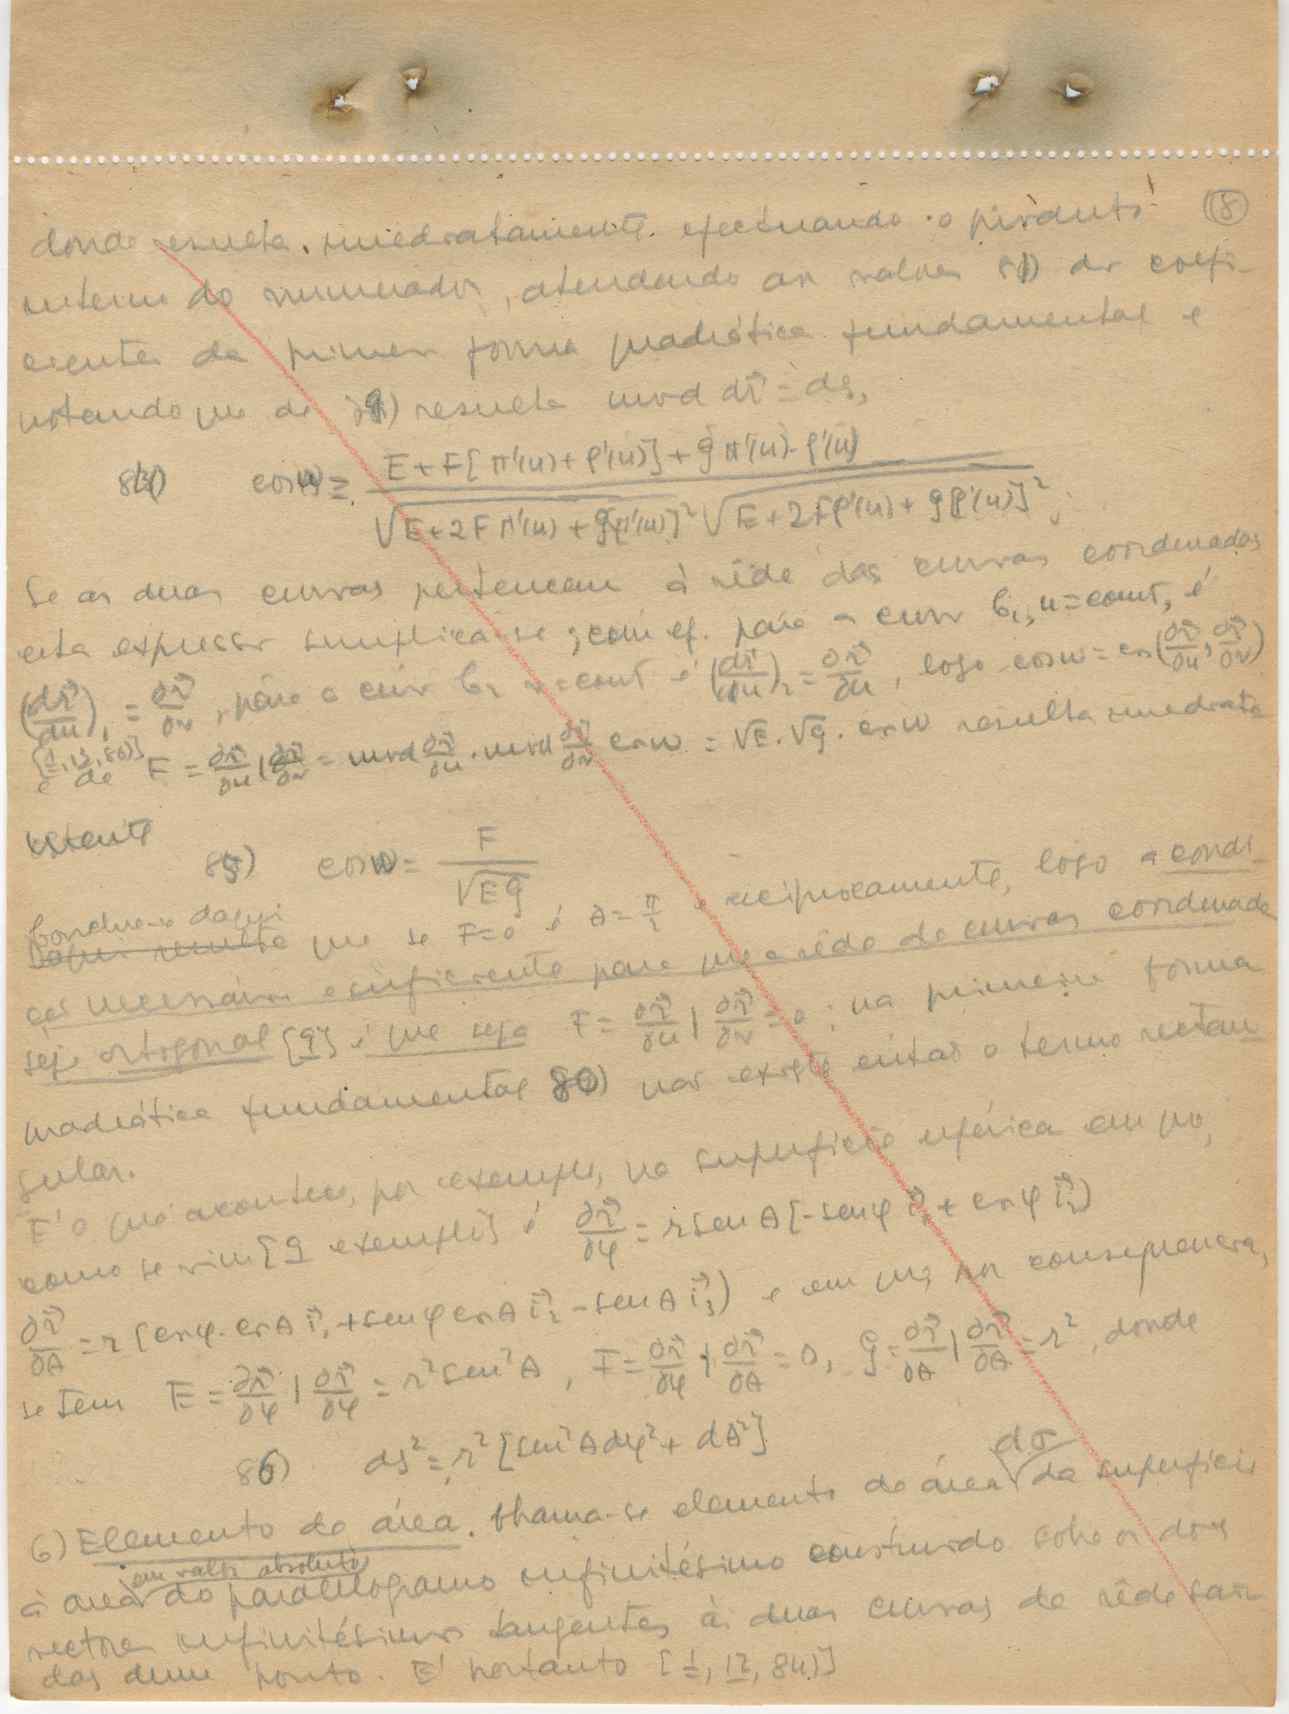 18
donde resulta imediatamente efectuando o produto
interno do numerador, atendendo aos valores 81) dos coefi-
cientes da primeira forma quadrática fundamental e
notando que de 79) resulta mod dr⃗ = ds,
84) cos ω = (E + F[π'(u) + ρ'(u)] + G π'(u)·ρ'(u)) / (√(E + 2F π'(u) + G[π'(u)]²) √(E + 2F ρ'(u) + G[ρ'(u)]²));
Se as duas curvas pertencem à rêde das curvas coordenadas
esta expressão simplifica-se; com ef. para a curva C₁, u = const, é
(dr⃗/du)₁ = ∂r⃗/∂v, para a curva C₂ v = const é (dr⃗/du)₂ = ∂r⃗/∂u, logo cos ω = cos(∂r⃗/∂u, ∂r⃗/∂v)
e de [1, 12, 80)] F = ∂r⃗/∂u | ∂r⃗/∂v = mod ∂r⃗/∂u · mod ∂r⃗/∂v cos ω = √E · √G · cos ω resulta imediata
mente
85) cos ω = F / √(EG)
Conclue-se daqui
Daqui resulta que se F = 0 é θ = π/2 e reciprocamente, logo a condi-
ção necessária e suficiente para que a rêde de curvas coordenadas
seja ortogonal [9] é que seja F = ∂r⃗/∂u | ∂r⃗/∂v = 0; na primeira forma
quadrática fundamental 80) não existe então o termo rectan
gular.
É o que acontece, por exemplo, na superfície esférica em que,
como se viu [9 exemplo] é ∂r⃗/∂φ = r sen θ [-sen φ i⃗₁ + cos φ i⃗₂)
∂r⃗/∂θ = r (cos φ · cos θ i⃗₁ + sen φ cos θ i⃗₂ - sen θ i⃗₃) e em que, por consequencia,
se tem E = ∂r⃗/∂φ | ∂r⃗/∂φ = r² sen² θ, F = ∂r⃗/∂φ | ∂r⃗/∂θ = 0, G = ∂r⃗/∂θ | ∂r⃗/∂θ = r², donde
86) ds² = r² [sen² θ dφ² + dθ²]
6) Elemento de área. Chama-se elemento de área dσ da superfície
à área em valor absoluto do paralelogramo infinitésimo construido sobre os dois
vectores infinitésimos tangentes às duas curvas da rêde saí-
das dum ponto. É portanto [1, 12, 84)]